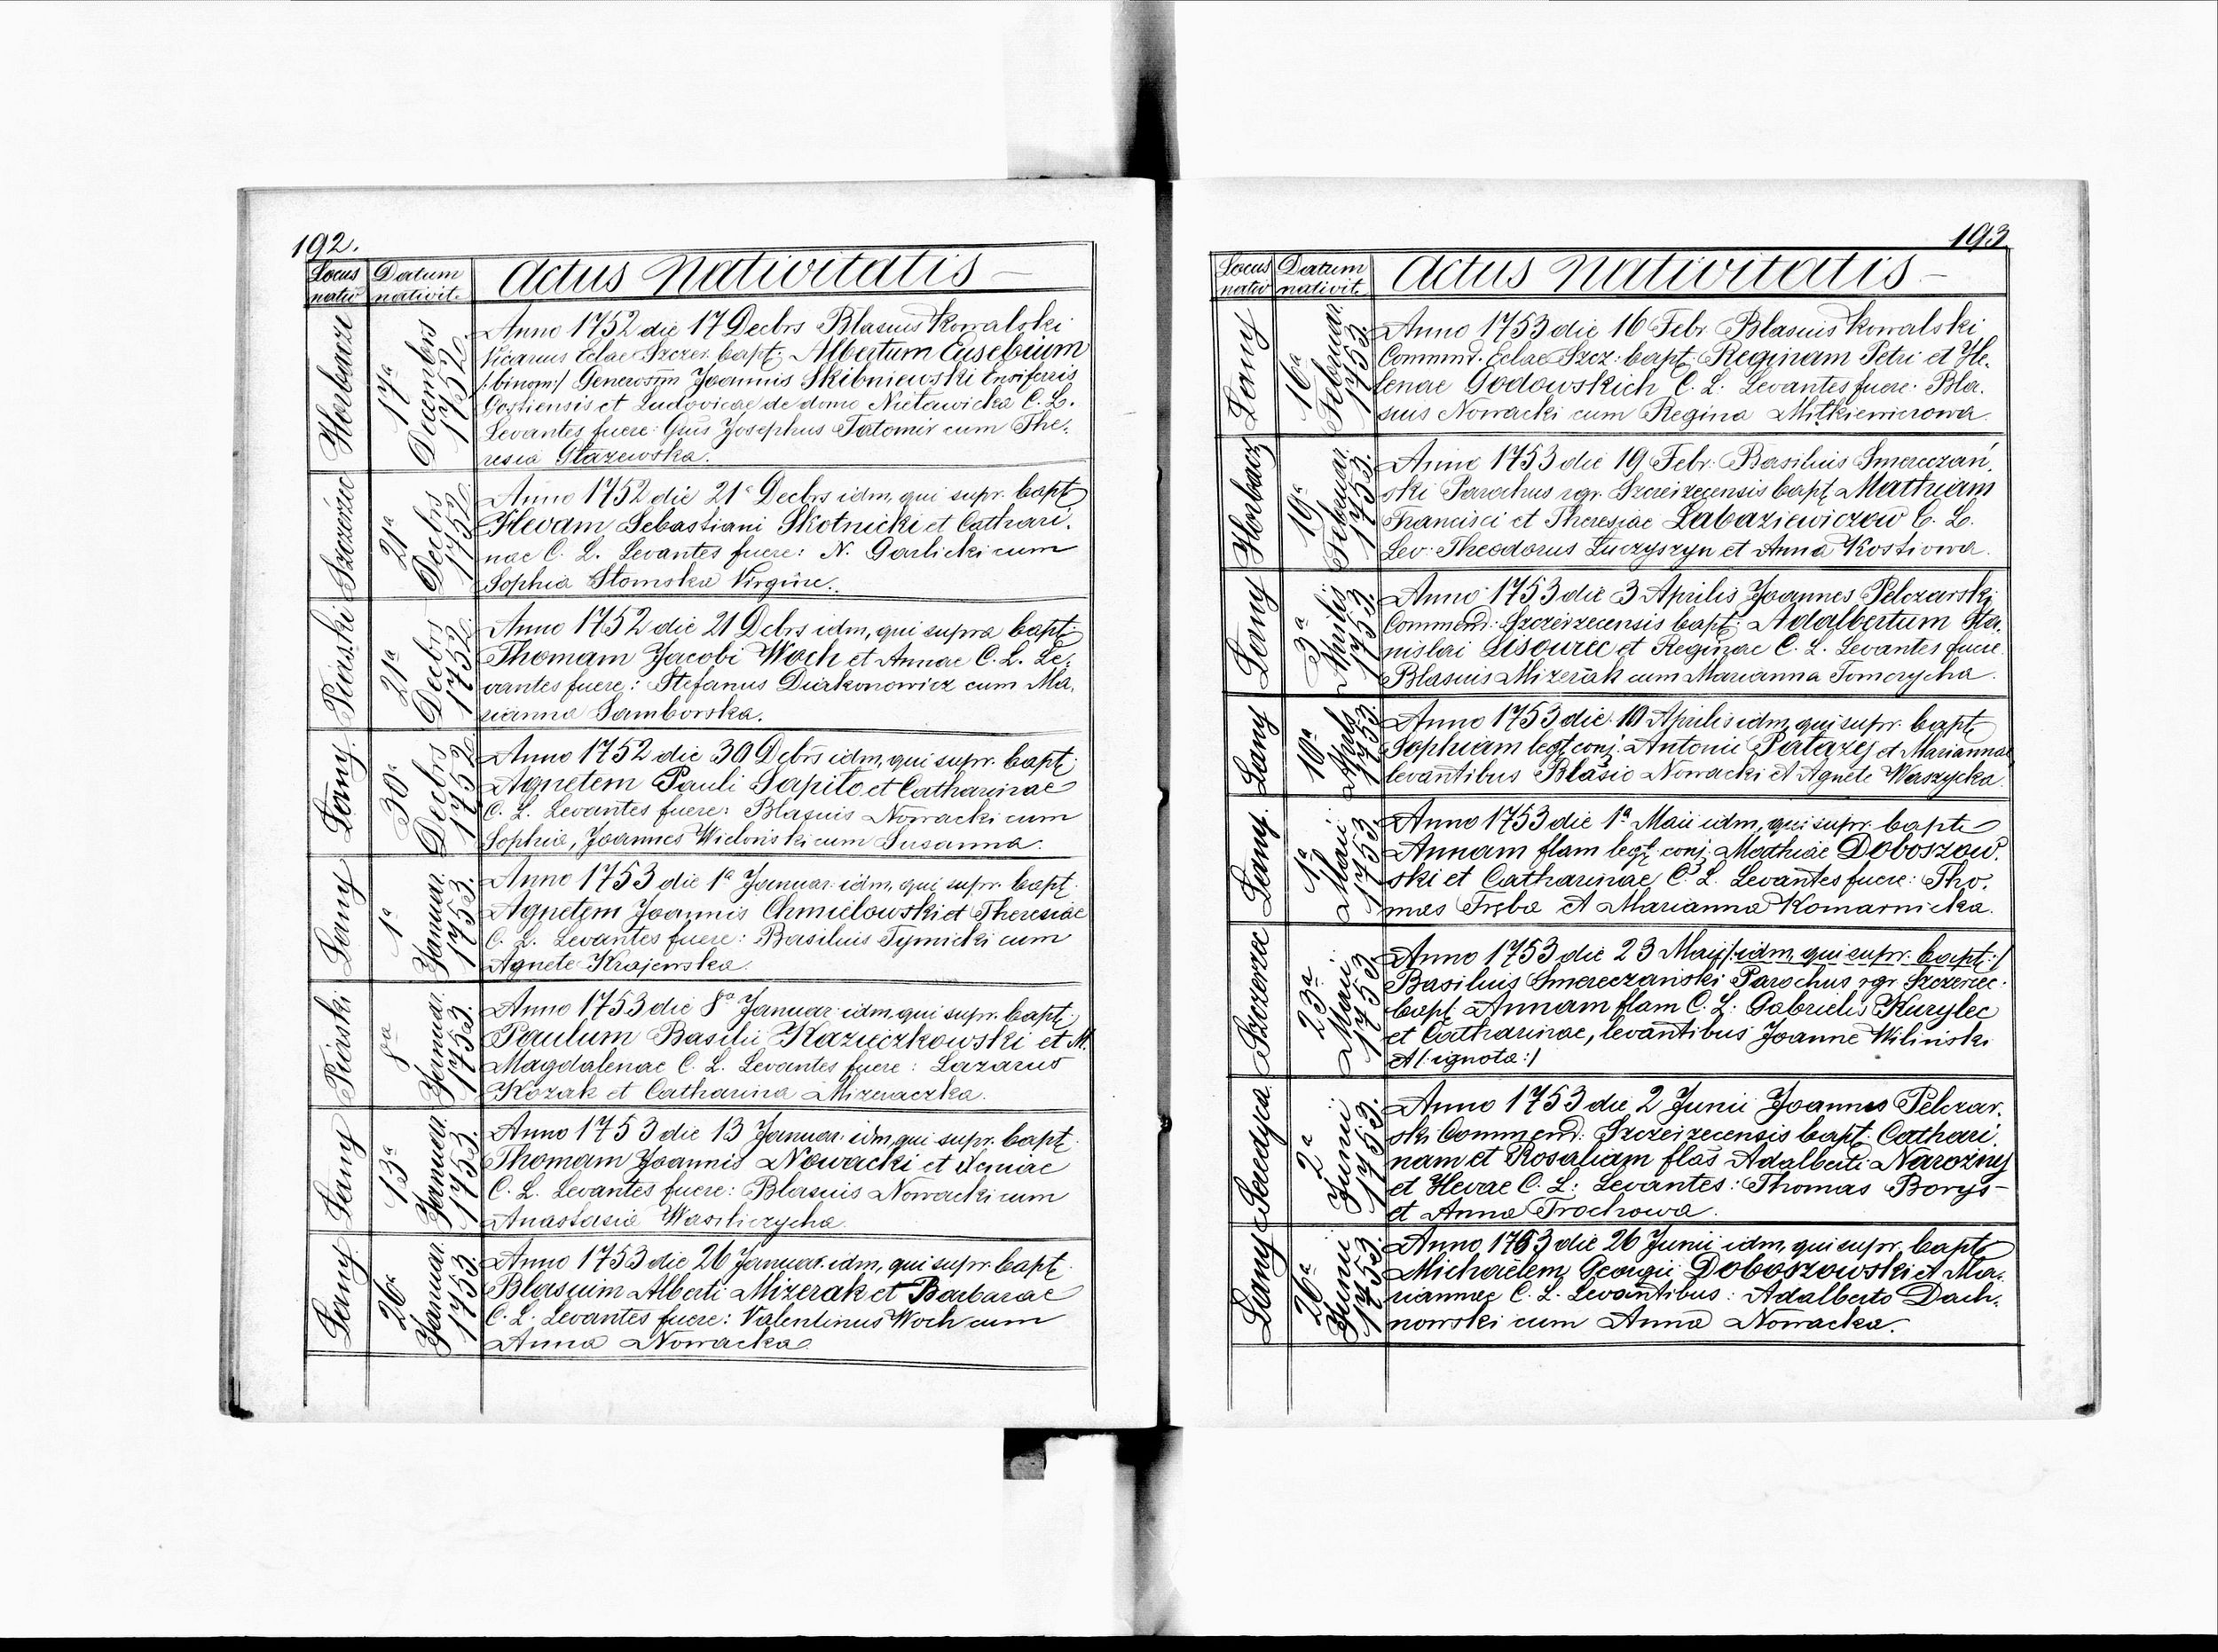 192.
Locus nativ. Datum nativit. Actus Nativitatis
Horbacze 17a Decembrs 1752.
Anno 1752 die 17 Decbrs Blasius Kowalski
Vicarius Eclae Szczer. bapt: Albertum Eusebium
/:binom:/ Generosm̄ Joannis Skibniewski Ensiferis
et Ludovicae de domo C. L.
Levantes fuere: Gsus Josephus Tatomir cum The-
resia Głazewska.
Szczérzec 21a Decbrs 1752.
Anno 1752 die 21a Decbrs idm, qui supr. bapt
Hevam Sebastiani Skotnicki et Cathari-
nae C. L. Levantes fuere: N. Garlicki cum
Sophia Słomska Virgine.
Piaski 21a Decbrs 1752.
Anno 1752 die 21 Dcbrs idm, qui supra bapt:
Thomam Jacobi Woch et Annae C. L. Le-
vantes fuere: Stefanus Diakonowicz cum Ma-
rianna Samborska.
Łany. 30a Decbrs 1752.
Anno 1752 die 30 Dcbrs idm, qui supr. bapt:
Agnetem Pauli Sapito et Catharinae
C. L. Levantes fuere: Blasius Nowacki cum
Sophia, Joannes Wielonski cum Susanna.
Łany 1a Januar. 1753.
Anno 1753 die 1a Januar. idm, qui supr. bapt.
Agnetem Joannis Chmielowski et Theresiae
C. L. Levantes fuere: Basilius Tymicki cum
Agnete Krajewska.
Piaski 8a Januar. 1753.
Anno 1753 die 8a Januar. idm, qui supr. bapt:
Paulum Basilii Kazieczkowski et M.
Magdalenae C. L. Levantes fuere: Lazarus
Kozak et Catharina Mizeraczka.
Łany 13a Januar. 1753.
Anno 1753 die 13 Januar. idm, qui supr. bapt.
Thomam Joannis Nowacki et Xeniae
C. L. Levantes fuere: Blasius Nowacki cum
Anastasia Wasiliczycha.
Łany. 26a Januar. 1753.
Anno 1753 die 26 Januar. idm, qui supr. bapt.
Blasium Alberti Mizerak et Barbarae
C. L. Levantes fuere: Valentinus Woch cum
Anna Nowacka
193
Locus nativ Datum nativit. Actus Nativitatis
Łany 16a Februar. 1753.
Anno 1753 die 16 Febr. Blasius Kowalski
Commend. Eclae Szcz: bapt: Reginam Petri et He-
lenae Godowskich C. L. Levantes fuere. Bla-
sius Nowacki cum Regina Mitkiewiczowa.
Horbacz 19a Februar. 1753.
Anno 1753 die 19 Febr. Basilius Smereczań-
ski Parochus rgr. Szczeirzecensis bapt Mathiam
Francisci et Theresiae Łabaziewiczow C. L.
Lev: Theodorus Łuczyszyn et Anna Kostiowa.
Łany 3a Aprilis 1753.
Anno 1753 die 3 Aprilis Joannes Pelczarski
Commend: Szczeirzecensis bapt: Adalbertum Sta-
nislai Lisouriec et Reginae C. L. Levantes fuere
Blasius Mizerak cum Marianna Tomczycha.
Łany 10a Aprls 1753
Anno 1753 die 10 Aprilis idm, qui supr. bapt
Sophiam legt conj. Antonii Patazej et Mariannae
levantibus Blasio Nowacki et Agnete Waszycka.
Łany. 1a Maii 1753.
Anno 1753 die 1a Maii idm, qui supr. bapt
Annam flam legt conj. Mathiae Doboszow-
ski et Catharinae C. L. Levantes fuere: Tho-
mas Tręba et Marianna Komarnicka.
Szczerzec 23a Maii 1753
Anno 1753 die 23 Maij /:idm, qui supr. bapt:/
Basilius Smereczański Parochus rgr Szczerzec.
bapt Annam flam C. L: Gabrielis Kurylec
et Catharinae, levantibus Joanne Wiliński
et /:ignota:/
Serdyca. 2a Junii 1753.
Anno 1753 die 2 Junii Joannes Pelczar-
ski Commend: Szczeirzecensis bapt: Cathari-
nam et Rosaliam flas Adalberti Narożny
et Hevae C. L: Levantes: Thomas Borys
et Anna Trochowa.
Łany 26a Junii 1753.
Anno 1753 die 26 Junii idm, qui supr. bapt
Michaëlem Georgii Doboszowski et Ma-
riannae C. L. Levantibus: Adalberto Dach-
nowski cum Anna Nowacka.